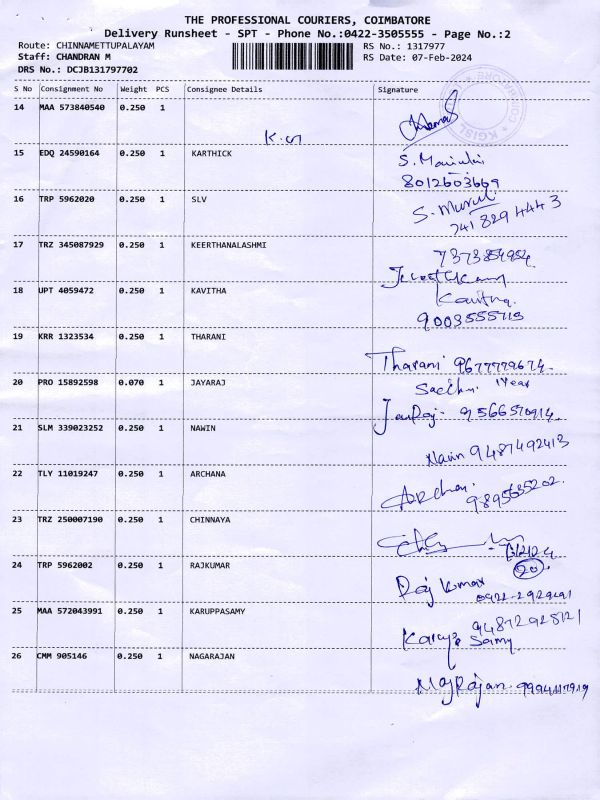 THE PROFESSIONAL COURIERS, COIMBATORE
Delivery Runsheet - SPT - Phone No.:0422-3505555 - Page No.:2
Route: CHINNAMETTUPALAYAM RS No.: 1317977
Staff: CHANDRAN M RS Date: 07-Feb-2024
DRS No.: DCJB131797702
S No Consignment No Weight PCS Consignee Details Signature
14 MAA 573840540 0.250 1
15 EDQ 24590164 0.250 1 KARTHICK S.
8012603669
16 TRP 5962020 0.250 1 SLV S. Murul
741 829 4443
17 TRZ 345087929 0.250 1 KEERTHANALASHMI
18 UPT 4059472 0.250 1 KAVITHA Kavitha
9003555713
19 KRR 1323534 0.250 1 THARANI
Tharani 9677779674
20 PRO 15892598 0.070 1 JAYARAJ
9566570914
21 SLM 339023252 0.250 1 NAWIN
Navin 9487492413
22 TLY 11019247 0.250 1 ARCHANA
23 TRZ 250007190 0.250 1 CHINNAYA
24 TRP 5962002 0.250 1 RAJKUMAR 20
Raj kumar
25 MAA 572043991 0.250 1 KARUPPASAMY
Samy
26 CMM 905146 0.250 1 NAGARAJAN